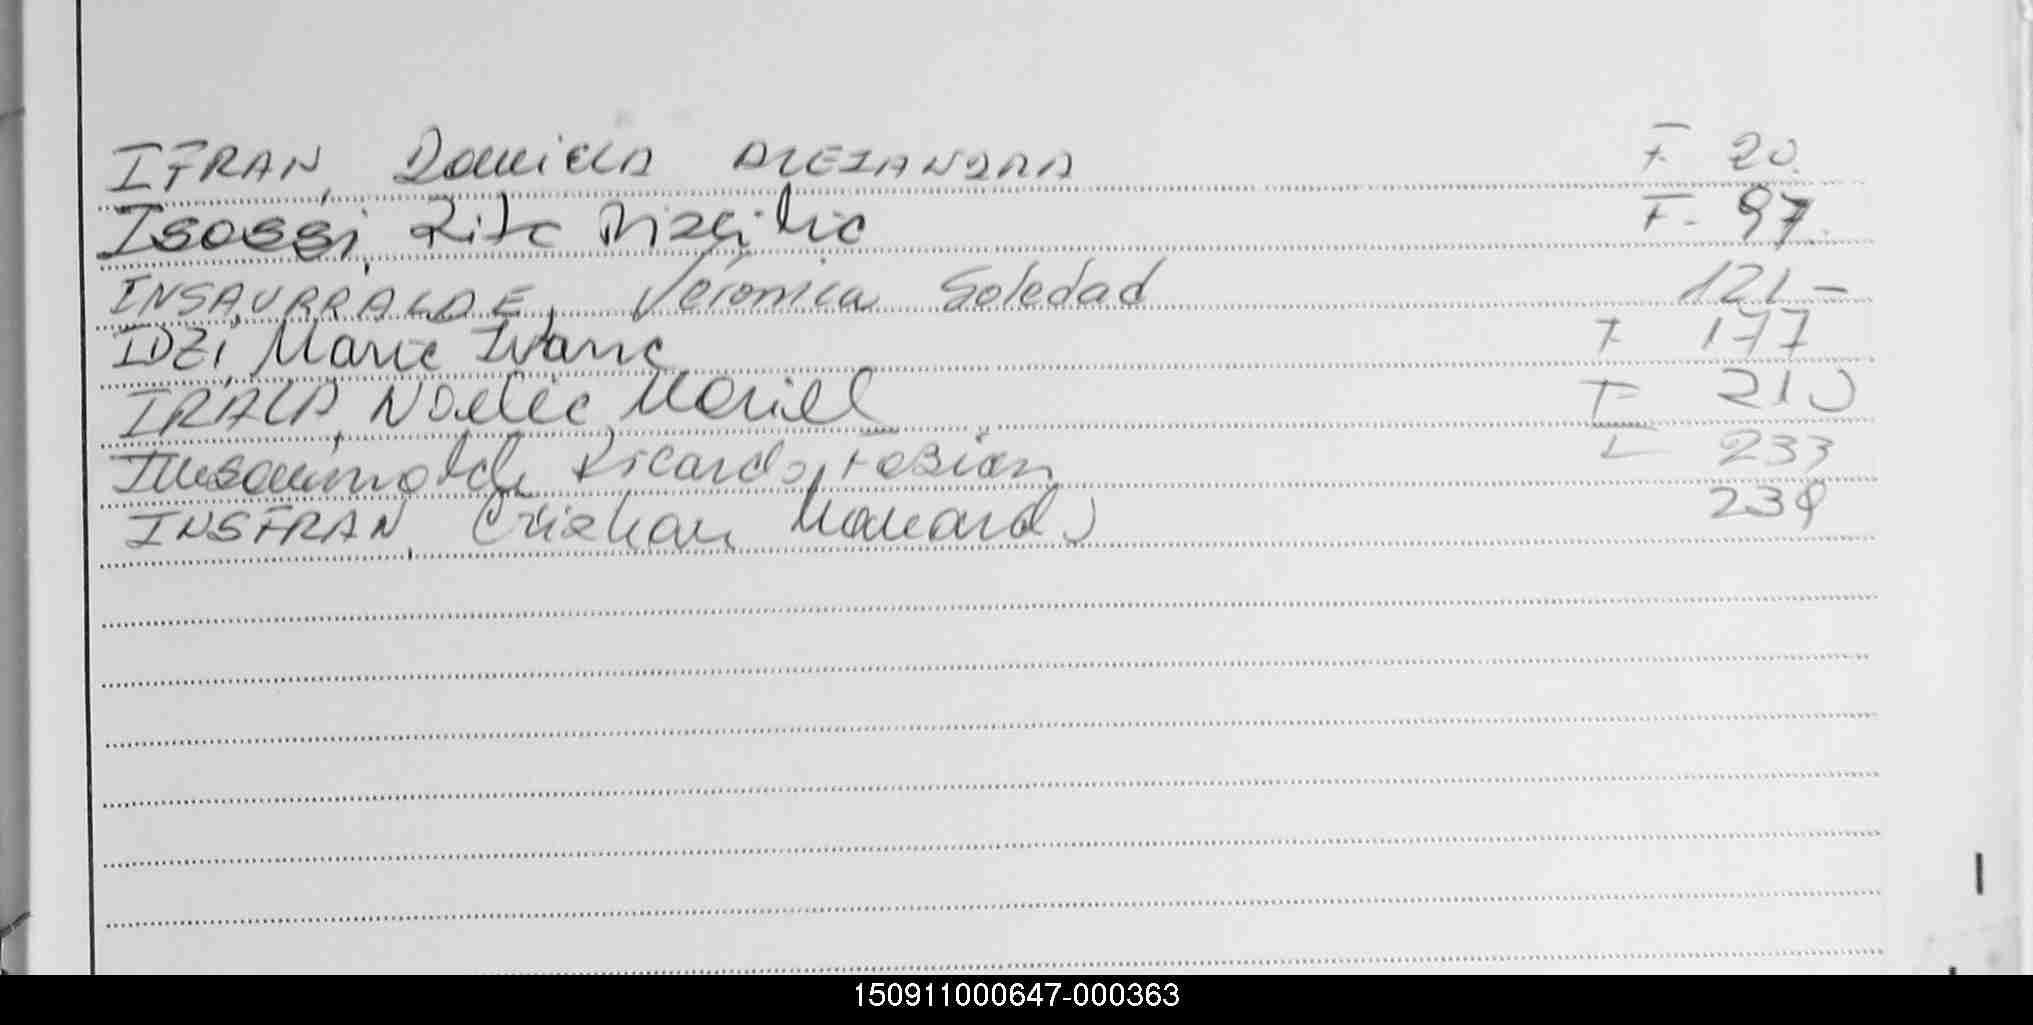 IFRAN, Daniela ALEJANDRA F. 20.
Isassi, Rita F. 97.
INSAURRALDE, Verónica Soledad 121 -
IDZI, Maria Ivana F 177
IRALA, Noelia Mariel F 210
Ricardo Fabian F 233
INSFRAN, Cristian 238
150911000647-000363